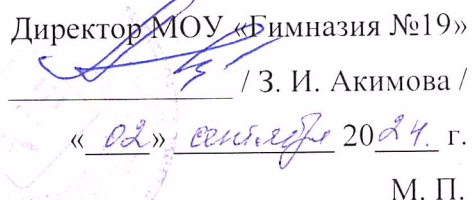 Директор МОУ «Гимназия №19»
/ З. И. Акимова /
«02» сентября 2024. г.
М. П.